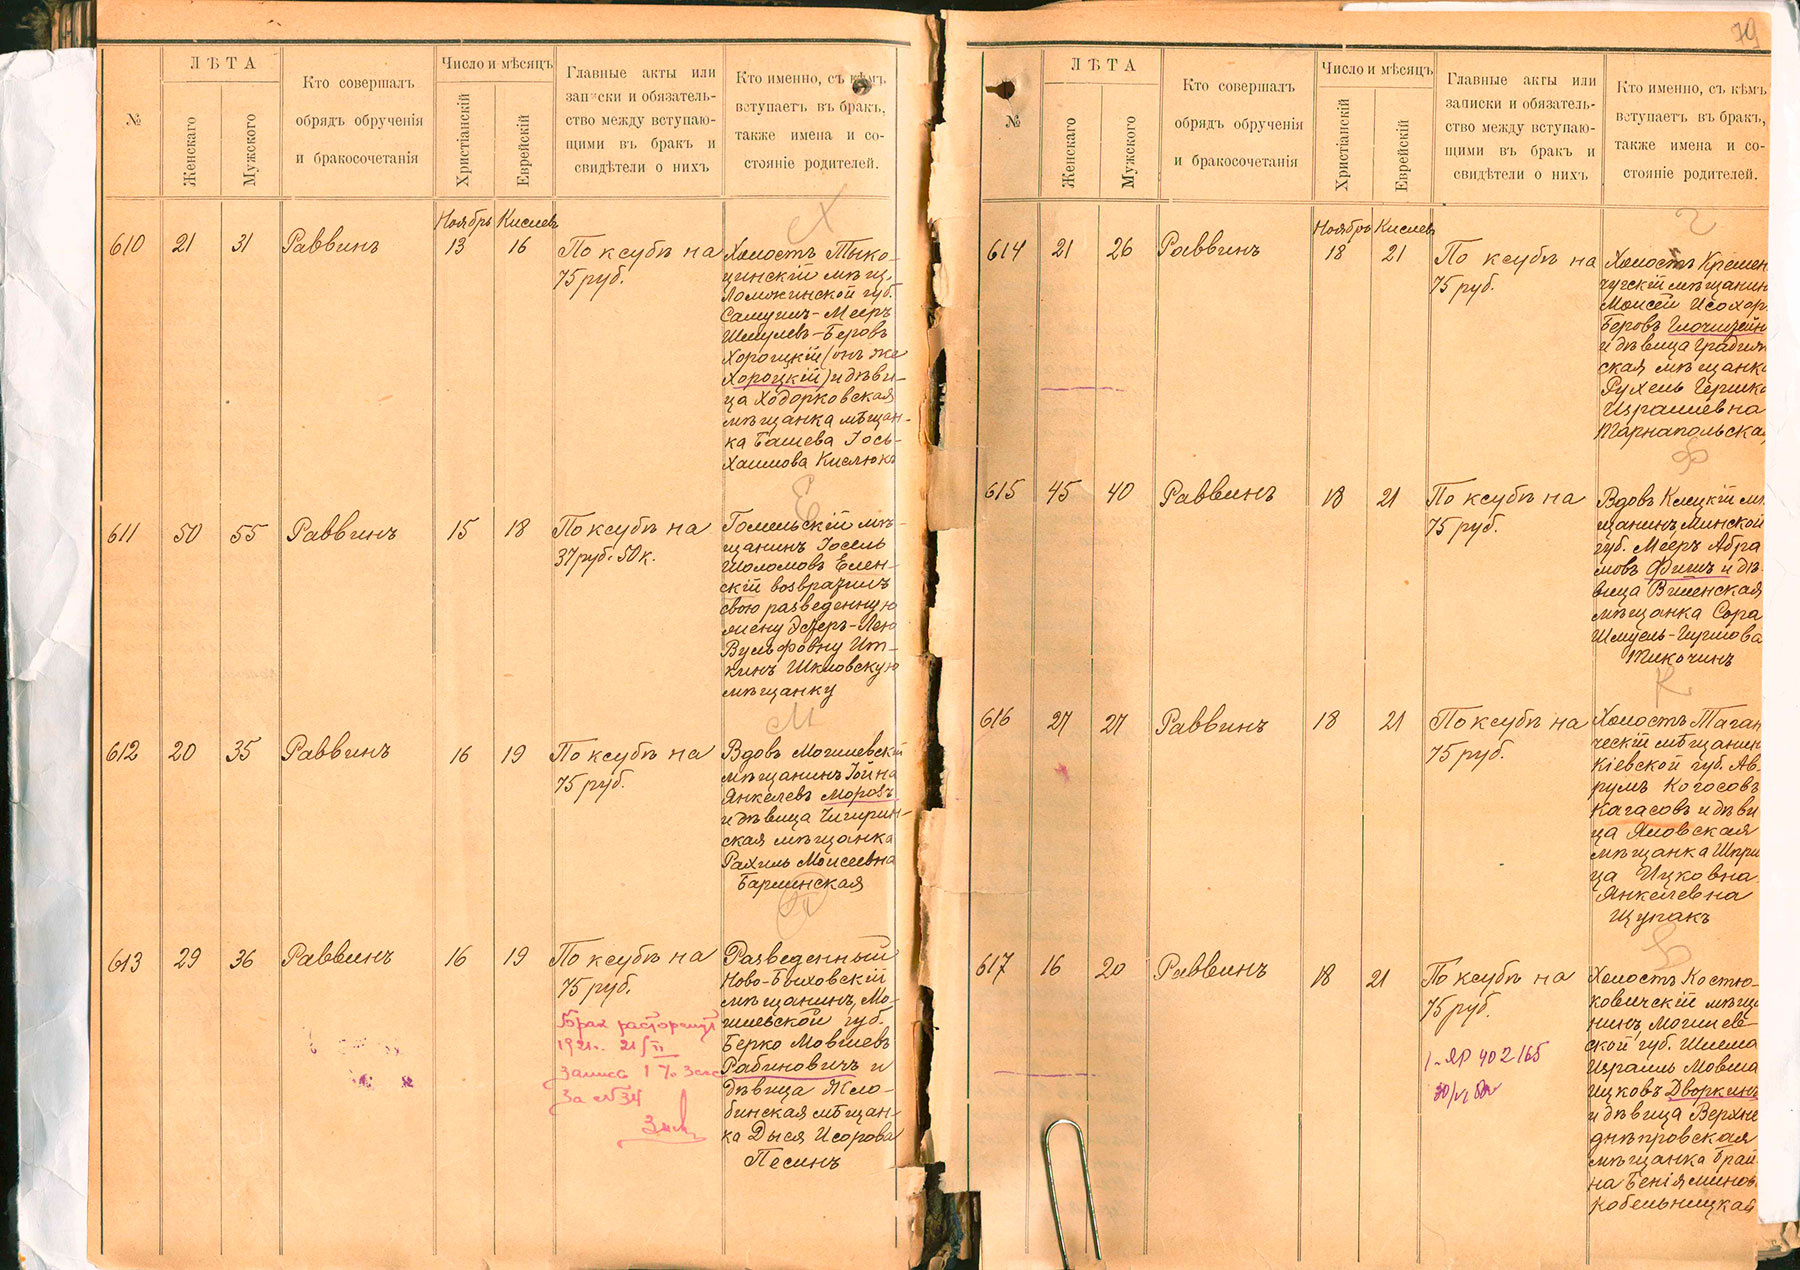 79
№
ЛѢТА
Женскаго
Мужского
Кто совершалъ
обрядъ обрученія
и бракосочетанія
Число и мѣсяцъ
Христіанскій
Еврейскій
Главные акты или
записки и обязатель-
ство между вступаю-
щими въ бракъ и
свидѣтели о нихъ
Кто именно, съ кѣмъ
вступаетъ въ бракъ,
также имена и со-
стояніе родителей.
Ноябрь Кислевъ
Х
610 21 31 Раввинъ 13 16
По ксубѣ на
75 руб.
Холостъ Тыко-
цинскій мѣщ.
Ломжинской губ.
Самуилъ-Мееръ
Шмулевъ-Беровъ
Хорощкій (онъ же
Хороцкій) и дѣви-
ца Ходорковская
мѣщанка мѣщан-
ка Башева Іось-
Хаимова Кислюкъ
Е
611 50 55 Раввинъ 15 18
По ксубѣ на
37 руб. 50 к.
Гомельскій мѣ-
щанинъ Іосель
Шоломовъ Елен-
скій возвратилъ
свою разведенную
жену Эстеръ-Лею
Вульфовну Ит-
кинъ Шкловскую
мѣщанку
М
612 20 35 Раввинъ 16 19
По ксубѣ на
75 руб.
Вдовъ Могилевскій
мѣщанинъ Іойна
Янкелевъ Морозъ
и дѣвица Чигирин-
ская мѣщанка
Рахиль Моисеевна
Барлинская
613 29 36 Раввинъ 16 19
По ксубѣ на
75 руб.
Брак расторгнут
1921 г. 21/II
Запись
за №34
Разведенный
Ново-Быховскій
мѣщанинъ, Мо-
гилевской губ.
Берко Мовшевъ
Рабиновичъ и
дѣвица Жло-
бинская мѣщан-
ка Дыся Исорова
Песинъ
№
ЛѢТА
Женскаго
Мужского
Кто совершалъ
обрядъ обрученія
и бракосочетанія
Число и мѣсяцъ
Христіанскій
Еврейскій
Главные акты или
записки и обязатель-
ство между вступаю-
щими въ бракъ и
свидѣтели о нихъ
Кто именно, съ кѣмъ
вступаетъ въ бракъ,
также имена и со-
стояніе родителей.
Ноябрь Кислевъ
Г
614 21 26 Раввинъ 18 21
По ксубѣ на
75 руб.
Холостъ Кремен
чугскій мѣщанинъ
Моисей Исохоръ
Беровъ
и дѣвица Градиж
ская мѣщанка
Рухель Гершко
Израилевна
Тарнапольская
Ф
615 45 40 Раввинъ 18 21
По ксубѣ на
75 руб.
Вдовъ Клецкій мѣ
щанинъ Минской
губ. Мееръ Абра
мовъ Фишъ и дѣ-
вица Виленская
мѣщанка Сора
Шмуель-Гиршова
Тикочинъ
К
616 27 27 Раввинъ 18 21
По ксубѣ на
75 руб.
Холостъ Таган
ческій мѣщанинъ
Кіевской губ. Ав-
румъ Когосовъ
Кагасовъ и дѣви
ца Яновская
мѣщанка Шпри
ца Ицковна
Янкелевна
Щупакъ
617 16 20 Раввинъ 18 21
По ксубѣ на
75 руб.
1-ЯР 402165
Холостъ Костю-
ковичскій мѣща
нинъ, Могилев-
ской губ. Шлема
Израиль Мовша
Ицковъ Дворкинъ
и дѣвица Верхне
днѣпровская
мѣщанка Брай
на Беніяминов.
Кобельницкая